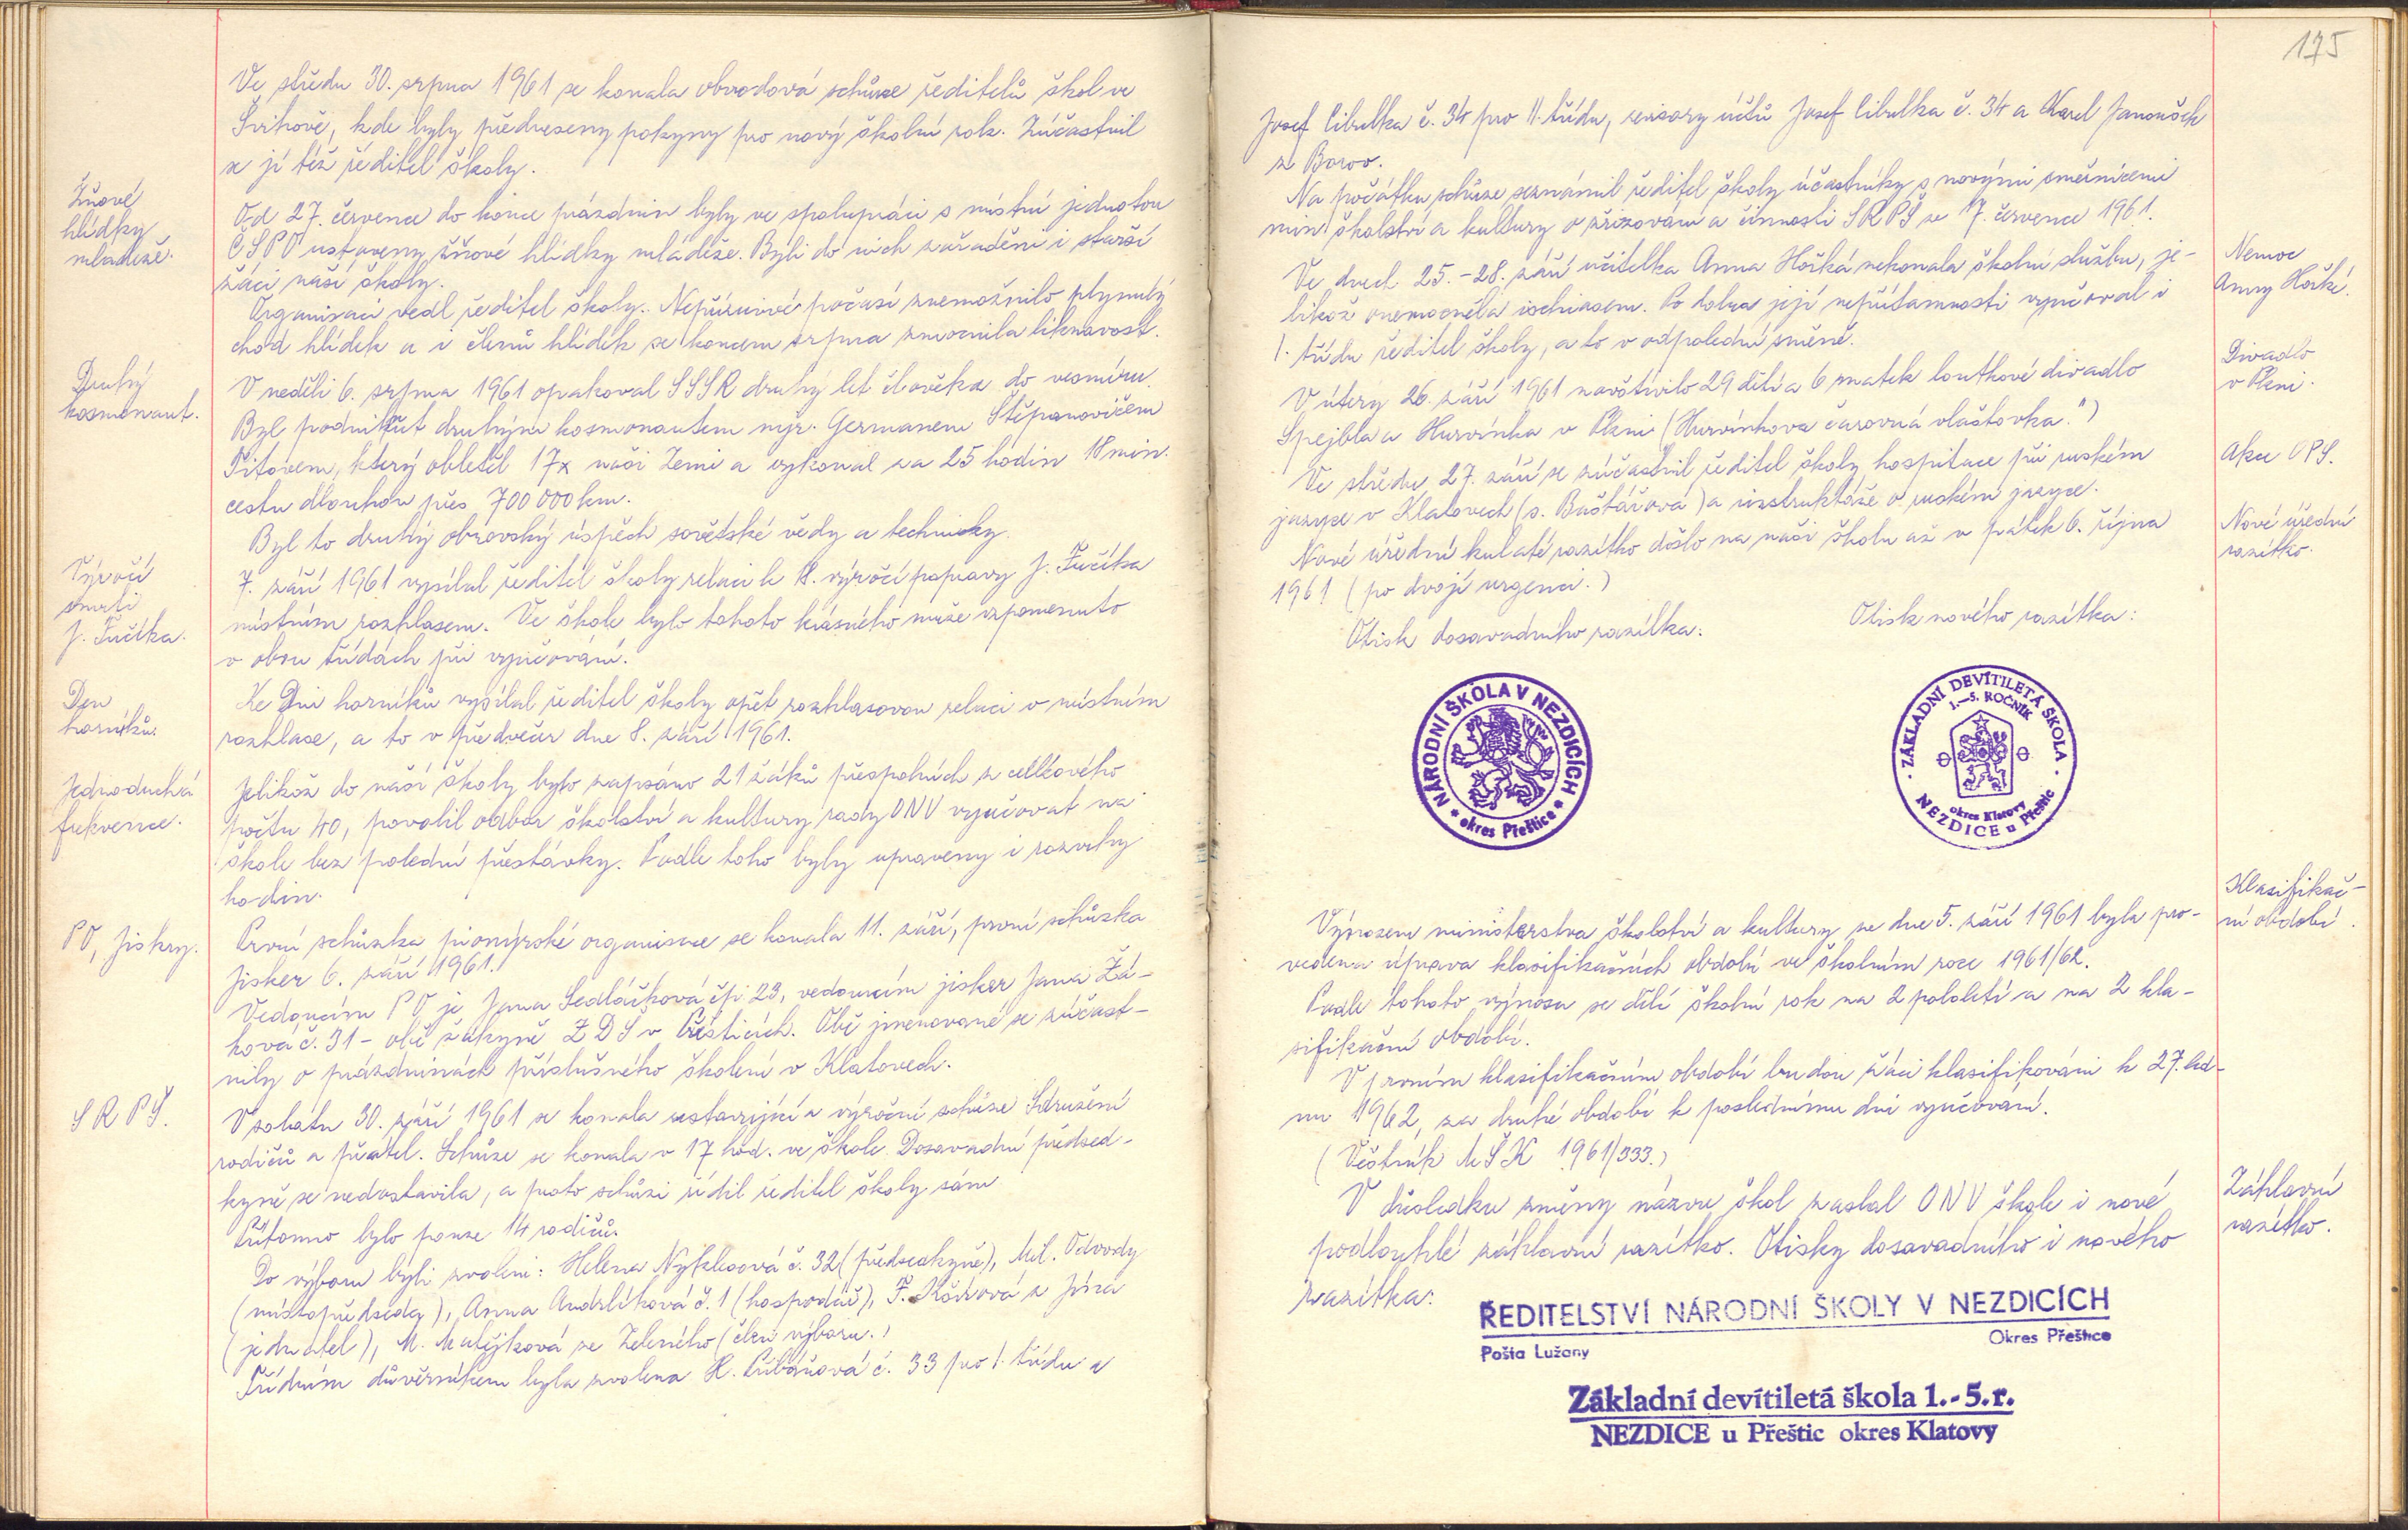 Ve středu 30. srpna 1961 se konala obvodová schůze ředitelů škol ve
Švihově, kde byly předneseny pokyny pro nový školní rok. Zúčastnil
se jí též ředitel školy.
Žňové
hlídky
mládeže.
Od 27. července do konce prázdnin byly ve spolupráci s místní jednotou
ČSPO ustaveny žňové hlídky mládeže. Byli do nich zařaděni i starší
žáci naší školy.
Organisaci vedl ředitel školy. Nepříznivé počasí znemožnilo plynulý
chod hlídek a i členů hlídek se koncem srpna zmocnila liknavost.
Druhý
kosmonaut.
V neděli 6. srpna 1961 opakoval SSSR druhý let člověka do vesmíru.
Byl podniknut druhým kosmonautem mjr. Germanem Štěpanovičem
Titovem, který obletěl 17x naši Zemi a vykonal za 25 hodin 18 min.
cestu dlouhou přes 700 000 km.
Byl to druhý obrovský úspěch sovětské vědy a techniky.
Výročí
smrti
J. Fučíka.
7. září 1961 vysílal ředitel školy relaci k 18. výročí popravy J. Fučíka
místním rozhlasem. Ve škole bylo tohoto krásného muže vzpomenuto
v obou třídách při vyučování.
Den
horníků.
Ke Dni horníků vysílal ředitel školy opět rozhlasovou relaci v místním
rozhlase, a to v předvečer dne 8. září 1961.
Jednoduchá
frekvence.
Jelikož do naší školy bylo zapsáno 21 žáků přespolních z celkového
počtu 40, povolil odbor školství a kultury rady ONV vyučovat na
škole bez polední přestávky. Podle toho byly upraveny i rozvrhy
hodin.
PO, Jiskry.
První schůzka pionýrské organisace se konala 11. září, první schůzka
Jisker 6. září 1961.
Vedoucím PO je Jana Sedláčková čp. 23, vedoucím jisker Jana Žá-
ková č. 31 - obě žákyně ZDŠ v Přešticích. Obě jmenované se zúčast-
nily o prázdninách příslušného školení v Klatovech.
SRPŠ.
V sobotu 30. září 1961 se konala ustavující a výroční schůze Sdružení
rodičů a přátel. Schůze se konala v 17 hod. ve škole. Dosavadní předsed-
kyně se nedostavila, a proto schůzi řídil ředitel školy sám.
Přítomno bylo pouze 14 rodičů.
Do výboru byli zvoleni: Helena Nyklesová č. 32 (předsedkyně), Mil. Odvody
(místopředseda), Anna Andrlíková č. 1 (hospodář), F. z Jína
(jednatel), M. Matějková ze Zeleného (člen výboru.)
Třídním důvěrníkem byla zvolena H. Pribáňová č. 33 pro I. třídu a
175
Josef Cibulka č. 34 pro II. třídu, revisory účtů Josef Cibulka č. 34 a Karel Janoušek
z Borov.
Na počátku schůze seznámil ředitel školy účastníky s novými směrnicemi
min. školství a kultury o zřizování a činnosti SRPŠ ze 7. července 1961.
Ve dnech 25.-28. září učitelka Anna Horká nekonala školní službu, je-
likož onemocněla ischiasem. Po dobu její nepřítomnosti vyučoval i
I. třídu ředitel školy, a to v odpolední směně.
Nemoc
Anny Horké.
V úterý 26. září 1961 navštívilo 29 dětí a 6 matek loutkové divadlo
Spejbla a Hurvínka v Plzni (Hurvínkova čarovná vlaštovka.")
Divadlo
v Plzni.
Ve středu 27. září se zúčastnil ředitel školy hospitace při ruském
jazyce v Klatovech (s. Baštářová) a instruktáže o ruském jazyce.
Akce OPS.
Nové úřední kulaté razítko došlo na naši školu až v pátek 6. října
1961 (po dvojí urgenci.)
Nové úřední
razítko.
Otisk dosavadního razítka:
Otisk nového razítka:
NÁRODNÍ ŠKOLA V NEZDICÍCH
* okres Přeštice *
· ZÁKLADNÍ DEVÍTILETÁ ŠKOLA ·
1.-5. ROČNÍK
okres Klatovy
NEZDICE u Přeštic
Klasifikač-
ní období.
Výnosem ministerstva školství a kultury ze dne 5. září 1961 byla pro-
vedena úprava klasifikačních období ve školním roce 1961/62.
Podle tohoto výnosu se dělí školní rok na 2 pololetí a na 2 kla-
sifikační období.
V prvním klasifikačním období budou žáci klasifikováni k 27. led-
nu 1962, za druhé období k poslednímu dni vyučování.
(Věstník MŠK 1961/333.)
Záhlavní
razítko.
V důsledku změny názvu škol zaslal ONV škole i nové
podlouhlé záhlavní razítko. Otisky dosavadního i nového
razítka:
ŘEDITELSTVÍ NÁRODNÍ ŠKOLY V NEZDICÍCH
Pošta Lužany
Okres Přeštice
Základní devítiletá škola 1.-5.r.
NEZDICE u Přeštic okres Klatovy